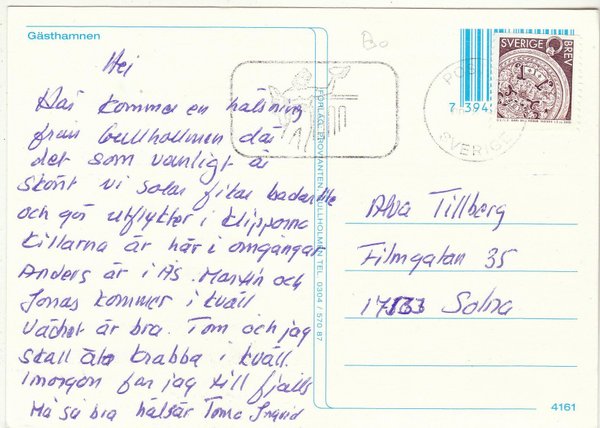 Gästhamnen
Hei
Här kommer en hälsning
från Gullholmen där
det som vanligt är
skönt vi solar fikar badar
och gör utflykter i klipporna
killarna är här i omgångar
Anders är i Ås. Martin och
Jonas kommer i kväll
Vädret är bra. Tom och jag
skall äta krabba i kväll.
Imorgon far jag till fjälls
Ha så bra hälsar Ingrid
FÖRLAG: PROVIANTEN, GULLHOLMEN TEL. 0304 / 570 87
SVERIGE BREV
POST
SVERIGE
Alva Tillberg
Filmgatan 35
Solna
4161